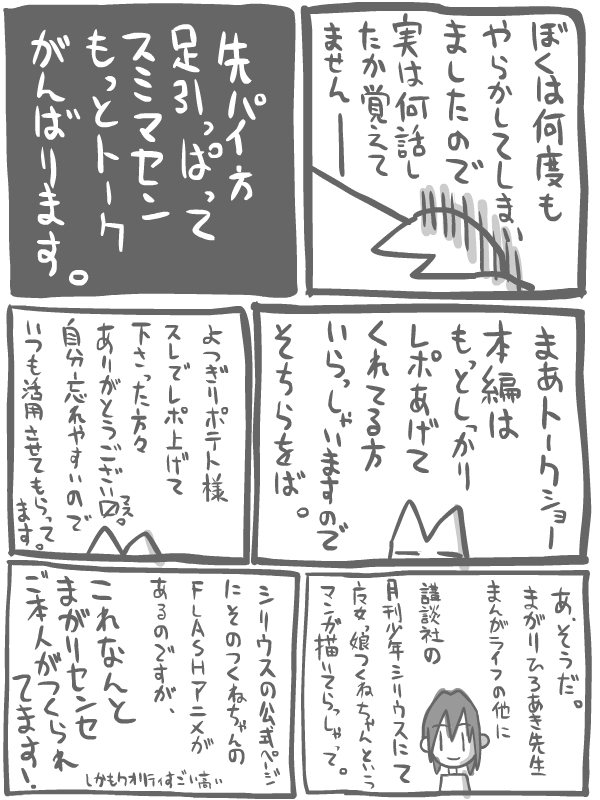 ぼくは何度も
やらかしてしまい
ましたので
実は何話し
たか覚えて
ませんー
先パイ方
足引っぱって
スミマセン
もっとトーク
がんばります。
まあトークショー
本編は
もっとしっかり
レポあげて
くれてる方
いらっしゃいますので
そちらをば。
よつぎりポテト様
スレでレポ上げて
下さった方々
ありがとうございロえ。
自分忘れやすいので
いつも活用させてもらって
ます。
あ、そうだ。
まがりひろあき先生
まんがライフの他に
講談社の
月刊少年シリウスにて
魔女っ娘つくねちゃんという
マンガ描いてらっしゃって。
シリウスの公式ページ
にそのつくねちゃんの
FLASHアニメが
あるのですが、
これなんと
まがりセンセ
ご本人がつくられ
てます！
しかもクオリティすごい高い